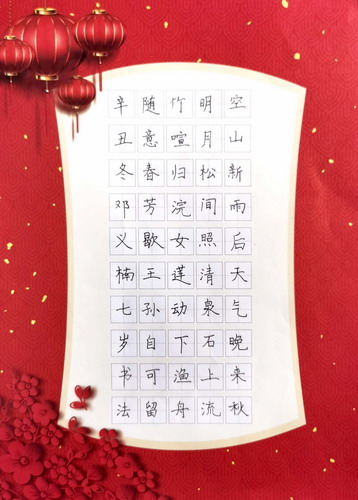 空山新雨后天气晚来秋
明月松间照清泉石上流
竹喧归浣女莲动下渔舟
随意春芳歇王孙自可留
辛丑冬邓义楠七岁书法